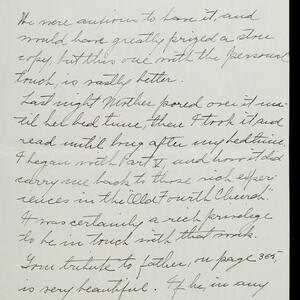 We were anxious to have it, and
would have greatly prized a store
copy, but this one with the personal
touch, is vastly better.
Last night Mother pored over it un-
til her bed time, then I took it and
read until long after my bedtime.
I began with Part V, and how it did
carry me back to those rich experi-
ences in the "Old Fourth Church".
It was certainly a rich privilege
to be in touch with that work.
Your tribute to father, on page 365,
is very beautiful. If he, in any